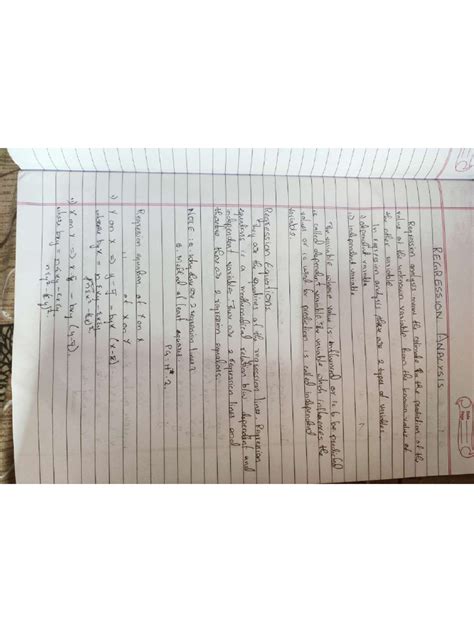 REGRESSION ANALYSIS
Regression analysis means the estimate or the prediction of the
value of the unknown variable from the known value of
the other variable.
In regression analysis, there are 2 types of variables
i) dependent variable
ii) independent variable
The variable whose value is influenced or is to be predicted
is called dependent variable. The variable which influences the
value or is used for prediction is called independent
variable.
Regression Equations
They are the equations of the regression lines. Regression
equation is a mathematical relation b/w dependent and
independent variables. There are 2 regression lines and
therefore there are 2 regression equations.
NOTE: i. why there are 2 regression lines?
ii. method of least squares
PG: 2.
Regression equation of Y on X
of X on Y
i) Y on X ⇒ y - ȳ = byx (x - x̄)
where byx = nΣxy - ΣxΣy
nΣx² - (Σx)²
ii) X on Y ⇒ x - x̄ = bxy (y - ȳ)
where bxy = nΣxy - ΣxΣy
nΣy² - (Σy)²